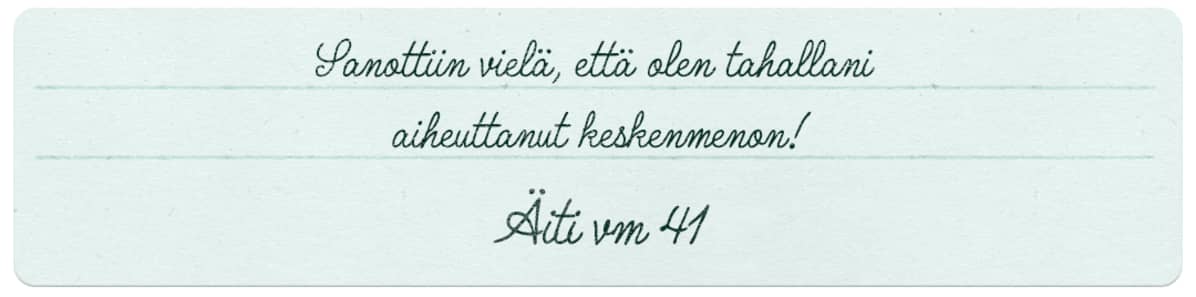 Sanottiin vielä, että olen tahallani
aiheuttanut keskenmenon!
Äiti vm 41